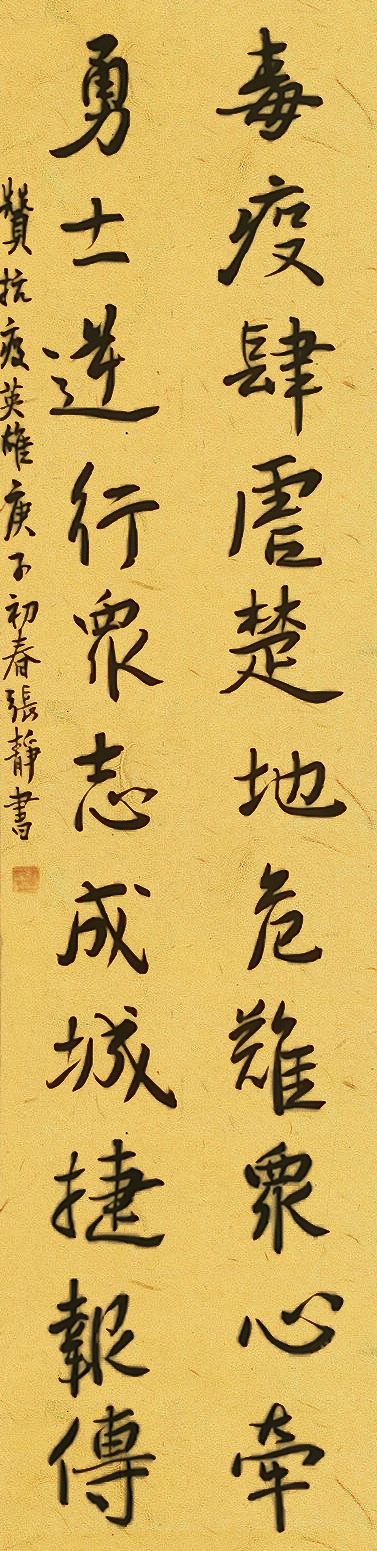 毒疫肆虐楚地危難眾心牽
勇士逆行眾志成城捷報傳
贊抗疫英雄庚子初春張靜書